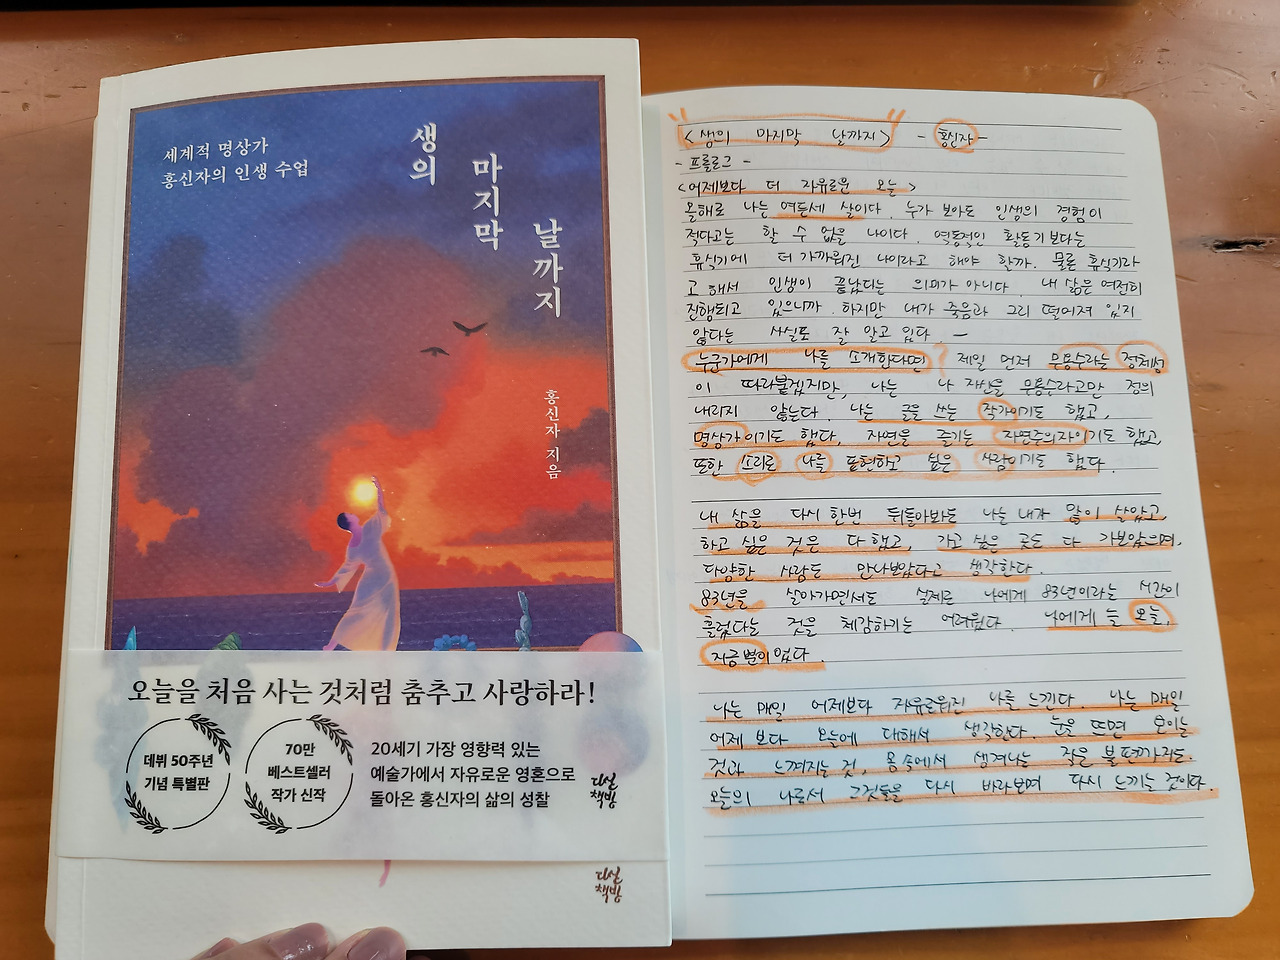 세계적 명상가
홍신자의 인생 수업
생의
마지막
날까지
홍신자 지음
오늘을 처음 사는 것처럼 춤추고 사랑하라!
데뷔 50주년
기념 특별판
70만
베스트셀러
작가 신작
20세기 가장 영향력 있는
예술가에서 자유로운 영혼으로
돌아온 홍신자의 삶의 성찰
다산
책방
다산
책방
<생의 마지막 날까지> - 홍신자 -
- 프롤로그 -
<어제보다 더 자유로운 오늘>
올해로 나는 여든세 살이다. 누가 보아도 인생의 경험이
적다고는 할 수 없을 나이다. 역동적인 활동기보다는
휴식기에 더 가까워진 나이라고 해야 할까. 물론 휴식기라
고 해서 인생이 끝났다는 의미가 아니다. 내 삶은 여전히
진행되고 있으니까. 하지만 내가 죽음과 그리 떨어져 있지
않다는 사실도 잘 알고 있다. -
누군가에게 나를 소개한다면 제일 먼저 무용수라는 정체성
이 따라붙겠지만, 나는 나 자신을 무용수라고만 정의
내리지 않는다. 나는 글을 쓰는 작가이기도 했고,
명상가이기도 했다, 자연을 즐기는 자연주의자이기도 했고,
또한 소리로 나를 표현하고 싶은 사람이기도 했다.
내 삶을 다시 한번 뒤돌아봐도 나는 내가 많이 살았고,
하고 싶은 것은 다 했고, 가고 싶은 곳도 다 가보았으며,
다양한 사람도 만나보았다고 생각한다.
83년을 살아가면서도 실제로 나에게 83년이라는 시간이
흘렀다는 것을 체감하기는 어려웠다. 나에게 늘 오늘,
지금 뿐이었다
나는 매일 어제보다 자유로워진 나를 느낀다. 나는 매일
어제 보다 오늘에 대해서 생각한다. 눈을 뜨면 보이는
것과 느껴지는 것, 몸 속에서 생겨나는 작은 불편까지도.
오늘의 나로서 그것들을 다시 바라보며 다시 느끼는 것이다.